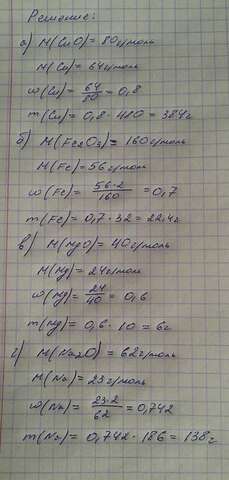 Решение:
а) M(CuO) = 80 г/моль
M(Cu) = 64 г/моль
w(Cu) = 64/80 = 0,8
m(Cu) = 0,8 · 480 = 384 г
б) M(Fe₂O₃) = 160 г/моль
M(Fe) = 56 г/моль
w(Fe) = 56·2/160 = 0,7
m(Fe) = 0,7 · 32 = 22,4 г
в) M(MgO) = 40 г/моль
M(Mg) = 24 г/моль
w(Mg) = 24/40 = 0,6
m(Mg) = 0,6 · 10 = 6 г
г) M(Na₂O) = 62 г/моль
M(Na) = 23 г/моль
w(Na) = 23·2/62 = 0,742
m(Na) = 0,742 · 186 = 138 г